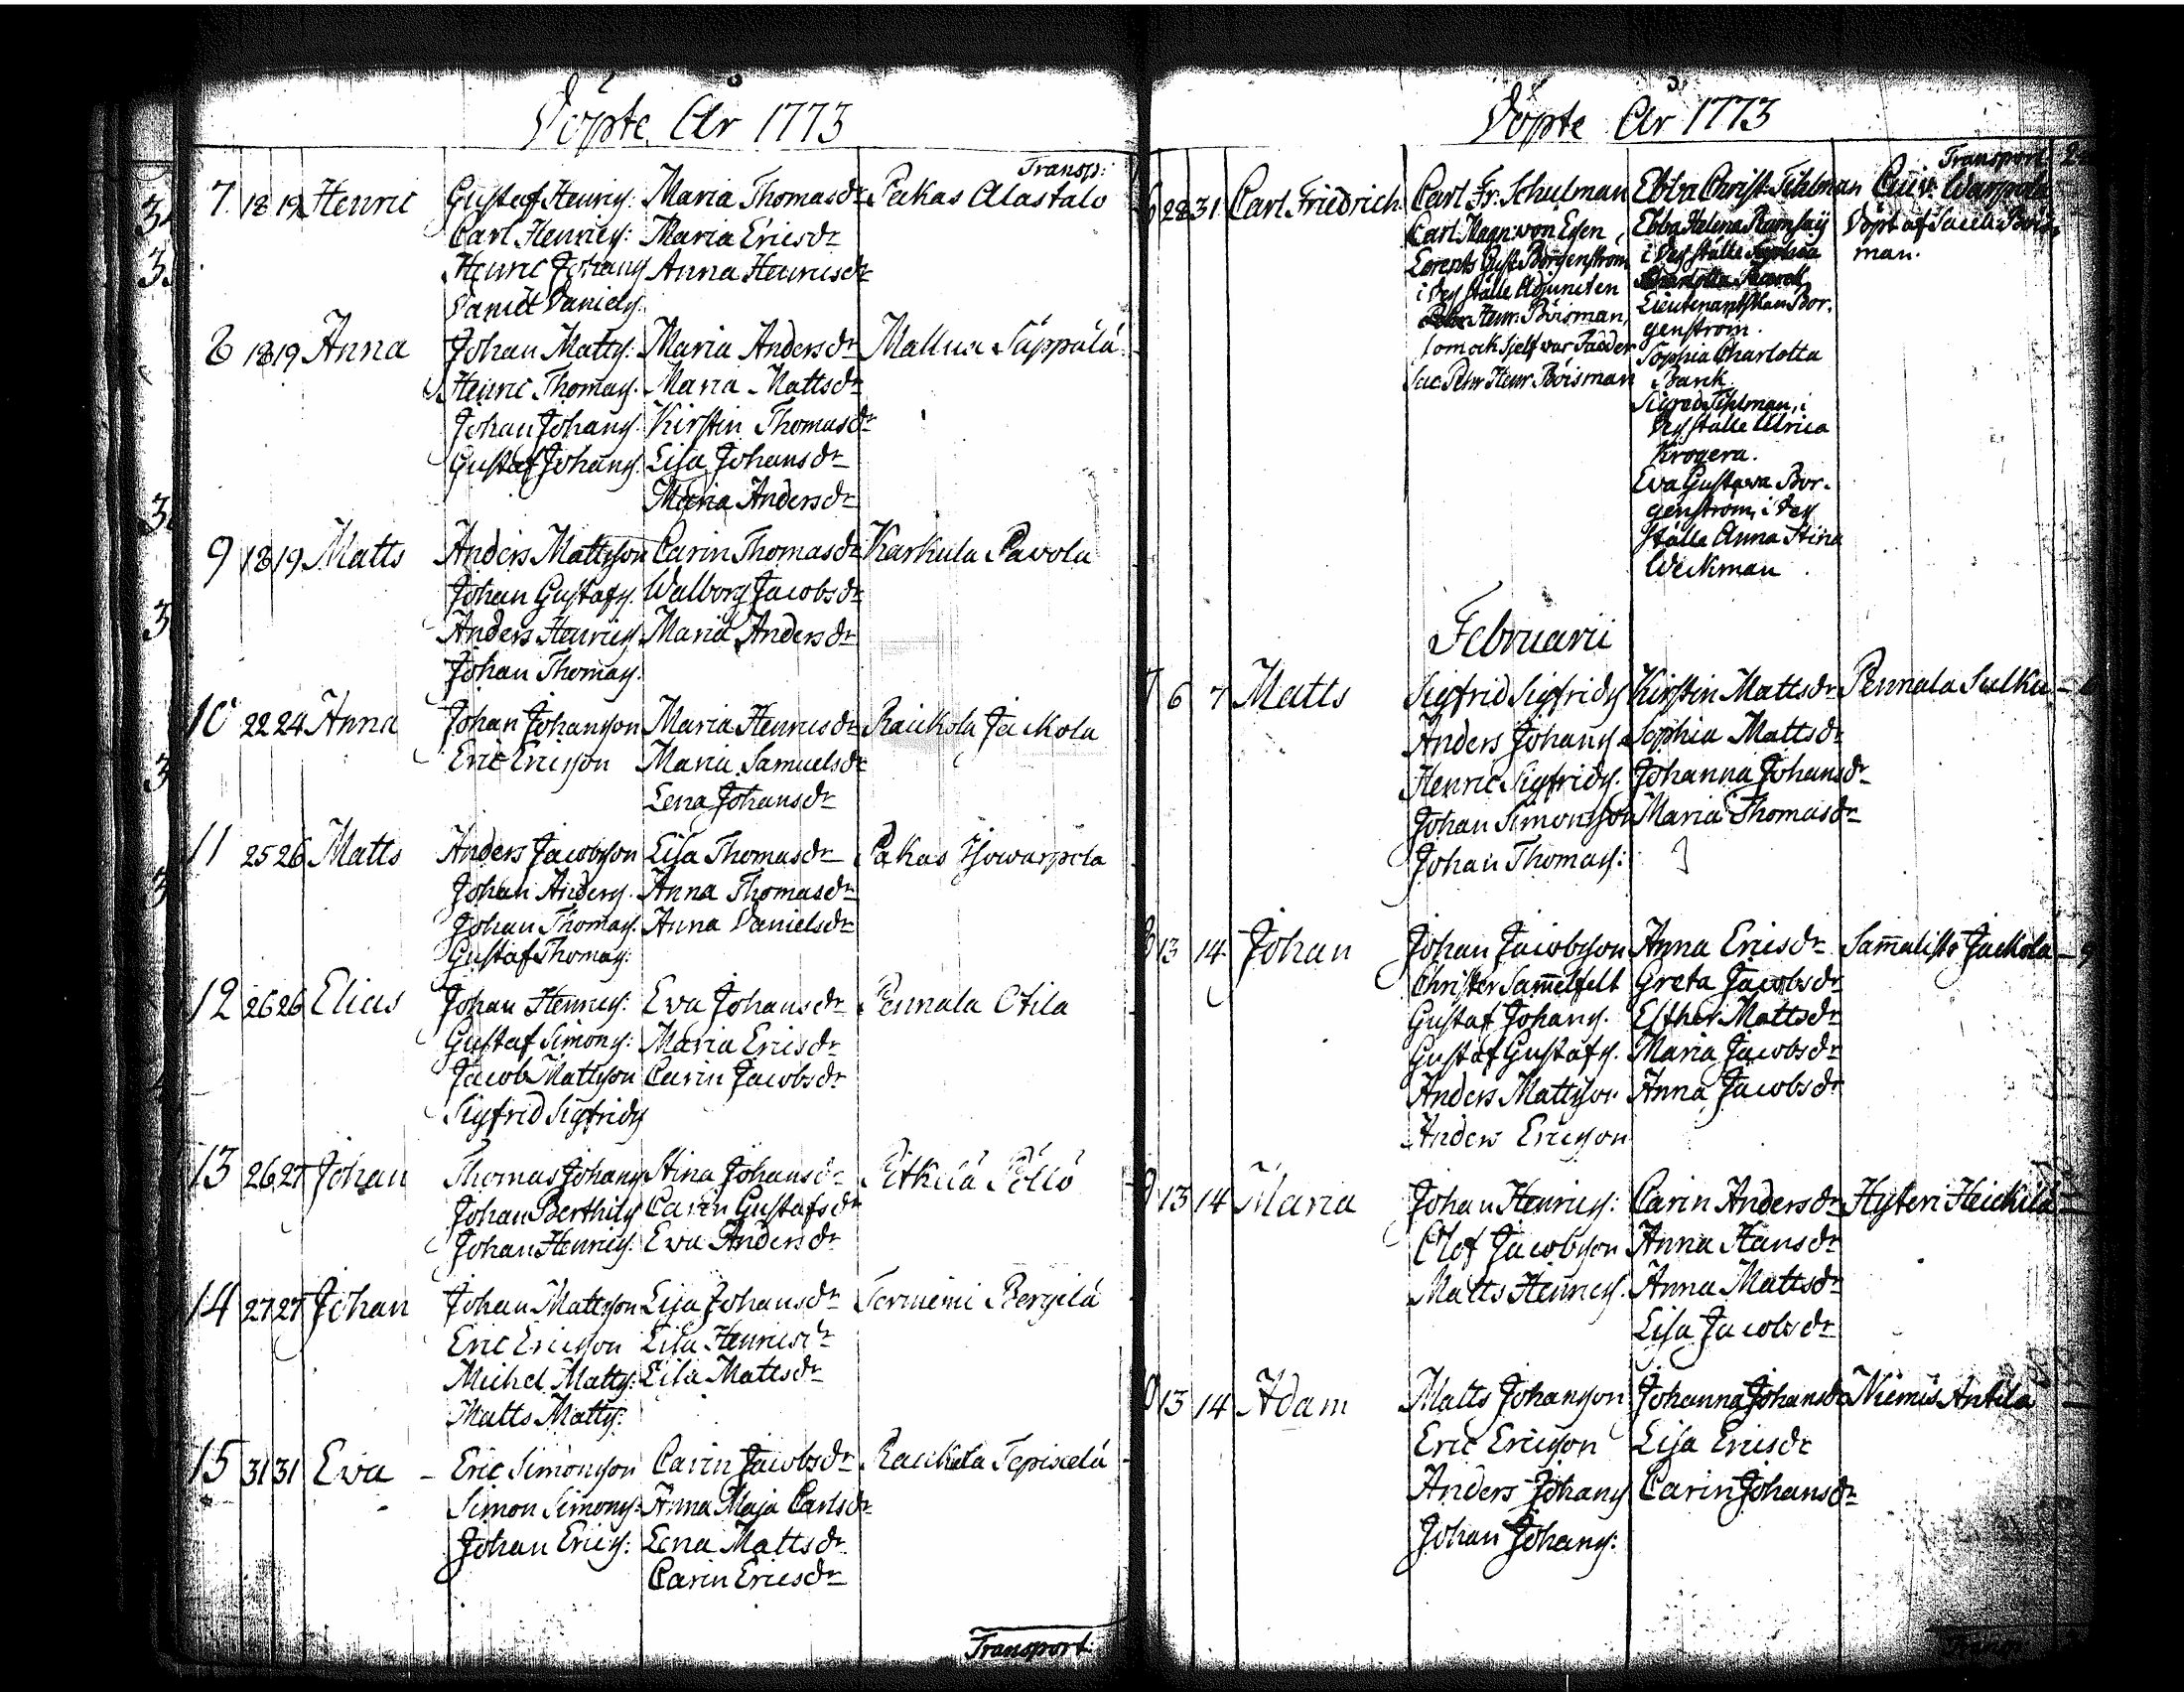 Döpte År 1773
Transp:
7 18 19 Henric Gustaf Henrics: Maria Thomasdr Pakas Alastalo
Carl Henrics: Maria Ericsdr
Henric Johans Anna Henricsdr
Daniel Daniels.
8 18 19 Anna Johan Matts: Maria Andersdr Mallua Säppälä
Henric Thomas. Maria Mattsdr
Johan Johans. Kirstin Thomasdr
Gustaf Johans. Lisa Johansdr
Maria Andersdr
9 18 19 Matts Anders Mattsson Carin Thomasdr Karkula Pavola
Johan Gustafs. Walborg Jacobsdr
Anders Henrics Maria Andersdr
Johan Thomas.
10 22 24 Anna Johan Johansson Maria Henricsdr Raickola Jackola
Eric Ericsson Maria Samuelsdr
Lena Johansdr
11 25 26 Matts Anders Jacobsson Lisa Thomasdr Pakas
Johan Anders. Anna Thomasdr
Johan Thomas. Anna Danielsdr
Gustaf Thomas:
12 26 26 Elias Johan Henrics: Eva Johansdr Pennala Otila
Gustaf Simons: Maria Ericsdr
Jacob Mattsson Carin Jacobsdr
Sigfrid Sigfrids
13 26 27 Johan Thomas Johans Stina Johansdr Pitkilä Pöllö
Johan Berthils Carin Gustafsdr
Johan Henrics: Eva Andersdr
14 27 27 Johan Johan Mattsson Lisa Johansdr Torniemi Bergilä
Eric Ericsson Lisa Henricsdr
Michel Matts: Lisa Mattsdr
Matts Matts:
15 31 31 Eva – Eric Simonsson Carin Jacobsdr Raickola
Simon Simons: Anna Maja Carlsdr
Johan Erics: Lena Mattsdr
Carin Ericsdr
Transport:
Döpte År 1773
Transport
28 31 Carl Friedrich Carl Fr. Schulman Ebba Christ. Tihlman Warpola
Carl Magn: von Essen, Ebba Helena Ramsaij Döpt af Sac:
Lorents Gust. Borgenstrom i dess ställe Sophia man.
i dess ställe Adjuncten Charlotta
Petr Henr. Boisman, Lieutenantskan Bor-
som ock sjelf war Fadder genstrom.
Sophia Charlotta
Sac. Petr Henr. Boisman Barck
Sigrid Tihlman, i
dess ställe Ulrica
Krogera.
Eva Gustava Bor-
genstrom, i dess
ställe Anna Stina
Weckman.
Februarii
6 7 Matts Sigfrid Sigfrids Kirstin Mattsdr Pennala Sulku
Anders Johans Sophia Mattsdr
Henric Sigfrids. Johanna Johansdr
Johan Simonsson Maria Thomasdr
Johan Thomas:
13 14 Johan Johan Jacobsson Anna Ericsdr Sam̄alisto Jackola
Christer Sam̄elfelt Greta Jacobsdr
Gustaf Johans. Esther Mattsdr
Gustaf Gustafs. Maria Jacobsdr
Anders Mattsson Anna Jacobsdr
Anders Ericsson
13 14 Maria Johan Henrics: Carin Andersdr Hysteri Heickilä
Olof Jacobsson Anna Hansdr
Matts Henrics. Anna Mattsdr
Lisa Jacobsdr
13 14 Adam Matts Johansson Johanna Johansdr Niemis Antila
Eric Ericsson Lisa Ericsdr
Anders Johans Carin Johansdr
Johan Johans: